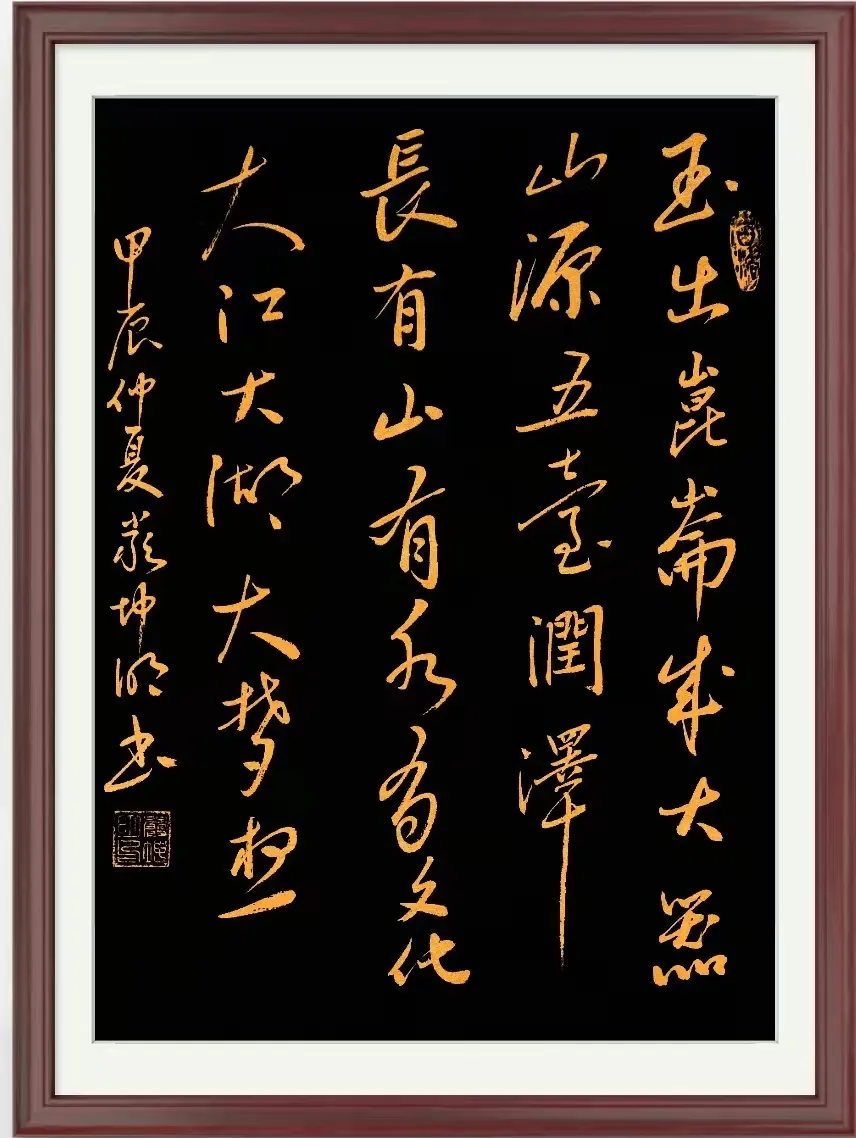 玉出崑崙成大器
山源五臺潤澤
長有山有水有文化
大江大湖大梦想
甲辰仲夏嚴坤明书